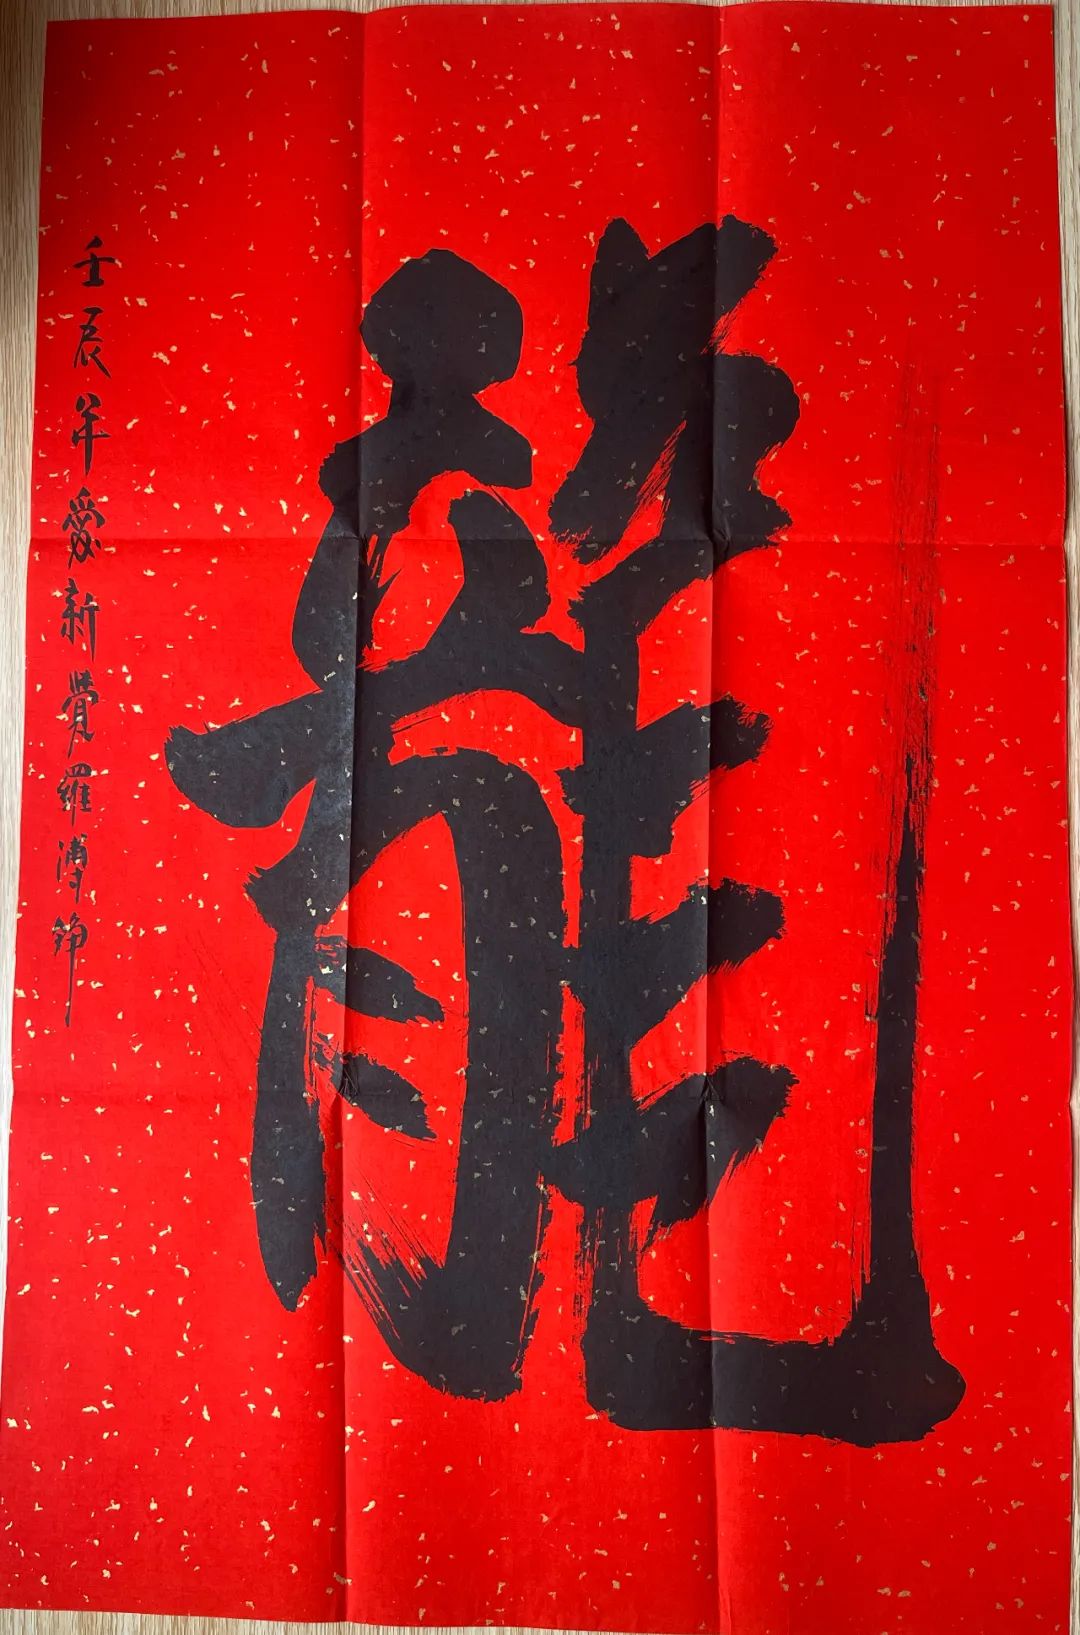 龍
壬辰年愛新覺羅溥錚